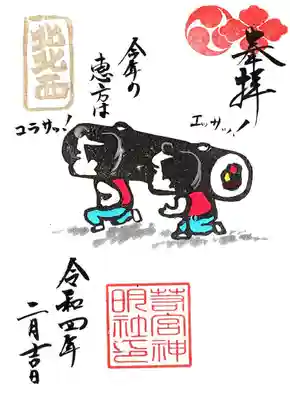 奉拝
エッサッ!
今年の
恵方は
北北西
コラサッ!
令和四年
二月吉日
苔宮神
明社印